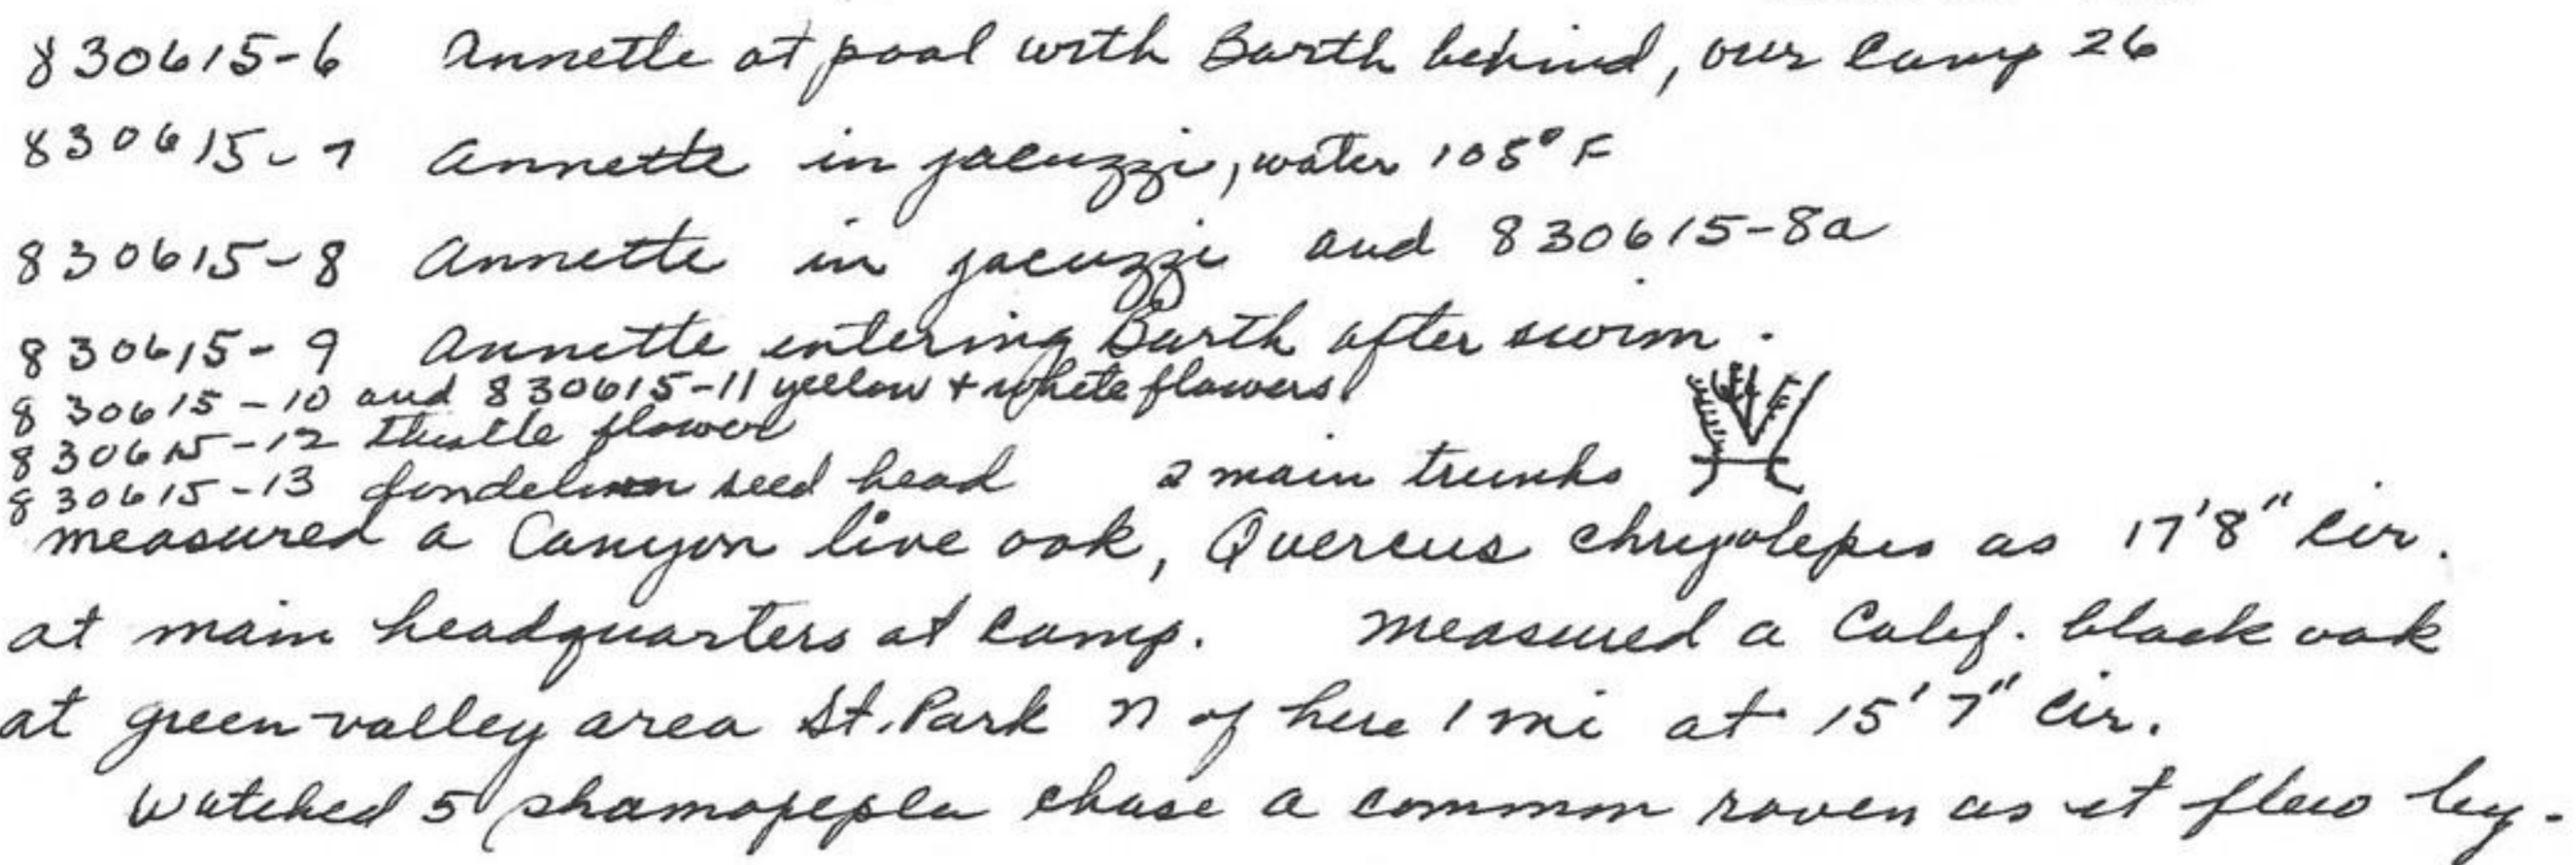 830615-6 Annette at pool with Barth behind, our Camp 26
830615-7 Annette in jacuzzi, water 105° F
830615-8 Annette in jacuzzi and 830615-8a
830615-9 Annette entering Barth after swim.
830615-10 and 830615-11 yellow + white flowers
830615-12 thistle flower
830615-13 dandelion seed head 2 main trunks
measured a Canyon live oak, Quercus chrysolepis as 17'8" cir.
at main headquarters at camp. Measured a Calif. black oak
at green valley area St. Park N of here 1 mi at 15'7" cir.
Watched 5 phainopepla chase a common raven as it flew by.